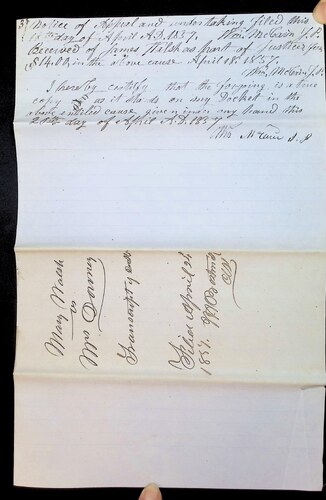 Notice of Appeal and undertaking filed this
day of April A.D. 1857. Wm. McGavin J.P.
Received of James Walsh as part of Justices fees
$14.00, in the above cause April 18. 1857.
Wm. McGavin J.P.
I hereby certify that the forgoing is a true
copy as it stands on my Docket in the
above entitled cause given under my hand this
20th day of April A.D. 1857
Wm J. P
Mary Walsh
vs
Transcript
Filed April 24
1857.